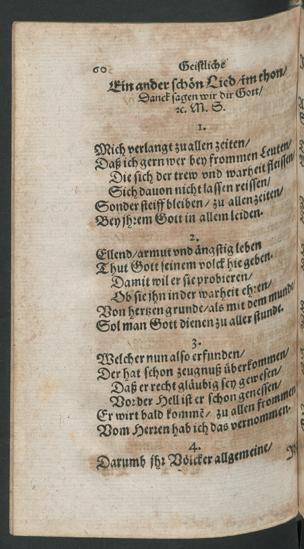 60 Geistliche
Ein ander schön Lied/im thon/
Danck sagen wir dir Gott/
ꝛc. M. S.
1.
Mich verlangt zu allen zeiten/
Daß ich gern wer bey frommen Leuten/
Die sich der trew vnd warheit fleissen/
Sich dauon nicht lassen reissen/
Sonder steiff bleiben/ zu allen zeiten/
Bey jhrem Gott in allem leiden.
2.
Ellend/armut vnd ängstig leben
Thut Gott seinem volck hie geben.
Damit wil er sie probieren/
Ob sie jhn in der warheit ehren/
Von hertzen grunde/als mit dem munde
Sol man Gott dienen zu aller stund.
3.
Welcher nun also erfunden/
Der hat schon zeugnuß überkommen/
Daß er recht gläubig sey gewesen/
Vor der Hell ist er schon genessen/
Er wirt bald kommē/ zu allen frommen
Vom Herren hab ich das vernommen.
4.
Darumb jhr Völcker allgemeine/